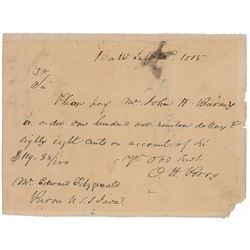 1815.
Sir
Please pay Mr John H.
or order one hundred and nineteen dollars &
eighty eight cents on account of
$119. 88/100
O. H. Perry
Mr Edward Fitzgerald
Purser U. S. S. Java